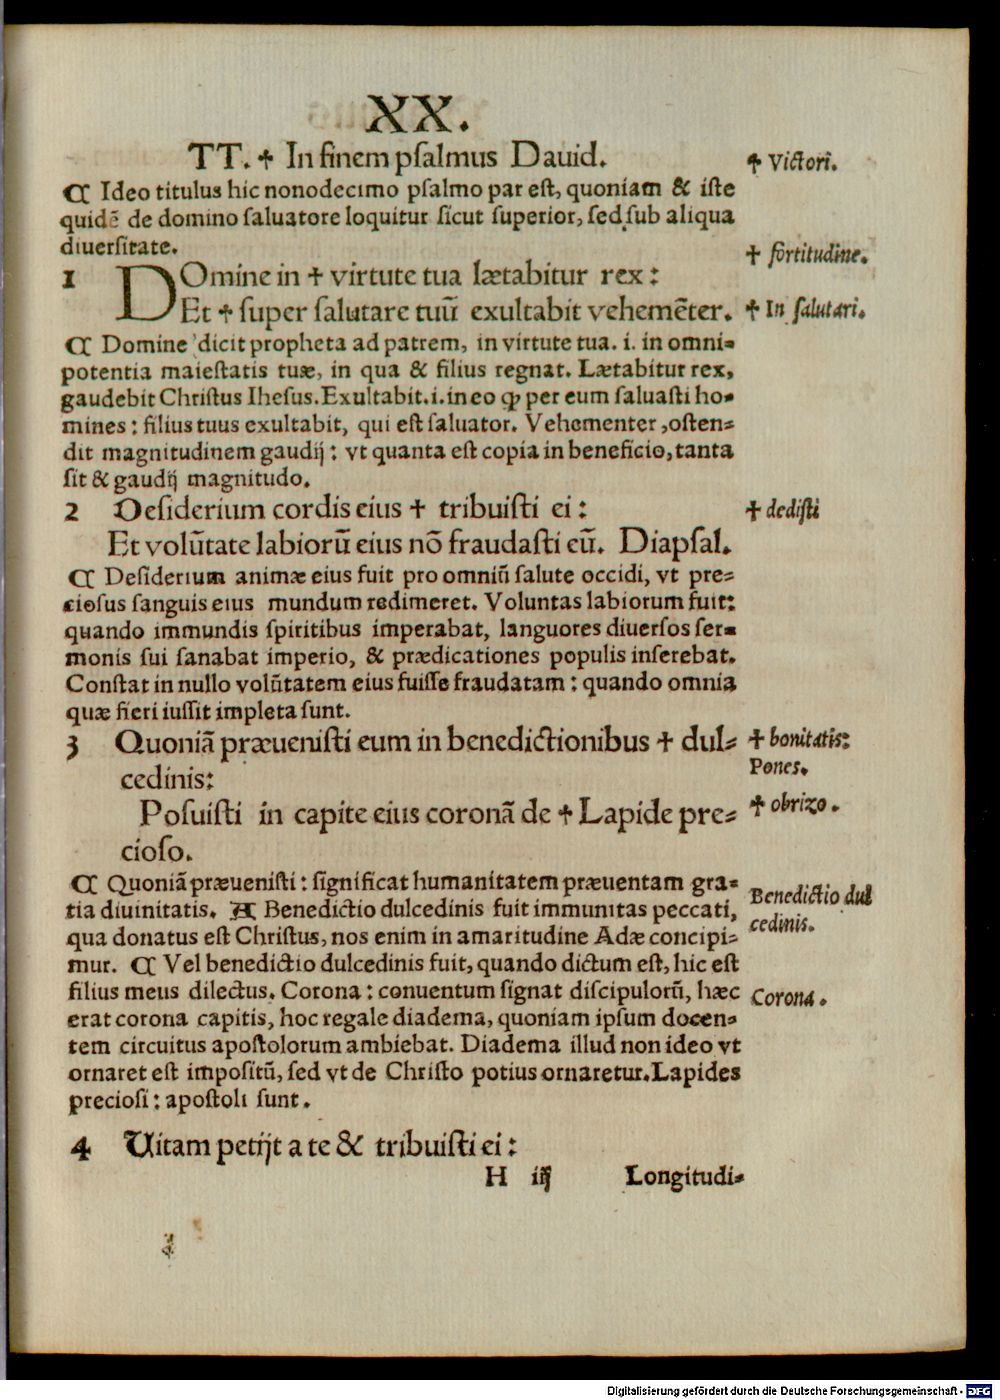 XX.
TT. ✝ In finem psalmus Dauid.
✝ Victori.
¶ Ideo titulus hic nonodecimo psalmo par est, quoniam & iste
quidē de domino saluatore loquitur sicut superior, sed sub aliqua
diuersitate.
✝ fortitudine.
1 DOmine in ✝ virtute tua lætabitur rex:
Et ✝ super salutare tuū exultabit vehemēter.
✝ In salutari.
¶ Domine dicit propheta ad patrem, in virtute tua. i. in omni-
potentia maiestatis tuæ, in qua & filius regnat. Lætabitur rex,
gaudebit Christus Ihesus. Exultabit. i. in eo ꝙ per eum saluasti ho-
mines: filius tuus exultabit, qui est saluator. Vehementer, osten-
dit magnitudinem gaudij: vt quanta est copia in beneficio, tanta
sit & gaudij magnitudo.
2 Desiderium cordis eius ✝ tribuisti ei:
✝ dedisti
Et volūtate labiorū eius nō fraudasti eū. Diapsal.
¶ Desiderium animæ eius fuit pro omniū salute occidi, vt pre-
ciosus sanguis eius mundum redimeret. Voluntas labiorum fuit:
quando immundis spiritibus imperabat, languores diuersos ser-
monis sui sanabat imperio, & prædicationes populis inserebat.
Constat in nullo volūtatem eius fuisse fraudatam: quando omnia
quæ fieri iussit impleta sunt.
3 Quoniā præuenisti eum in benedictionibus ✝ dul-
✝ bonitatis:
cedinis:
Pones.
Posuisti in capite eius coronā de ✝ Lapide pre-
✝ obrizo.
cioso.
¶ Quoniā præuenisti: significat humanitatem præuentam gra-
tia diuinitatis. A Benedictio dulcedinis fuit immunitas peccati,
Benedictio dul
cedinis.
qua donatus est Christus, nos enim in amaritudine Adæ concipi-
mur. ¶ Vel benedictio dulcedinis fuit, quando dictum est, hic est
filius meus dilectus. Corona: conuentum signat discipulorū, hæc
Corona.
erat corona capitis, hoc regale diadema, quoniam ipsum docen-
tem circuitus apostolorum ambiebat. Diadema illud non ideo vt
ornaret est impositū, sed vt de Christo potius ornaretur. Lapides
preciosi: apostoli sunt.
4 Uitam petijt a te & tribuisti ei:
H iij Longitudi-
Digitalisierung gefördert durch die Deutsche Forschungsgemeinschaft - DFG